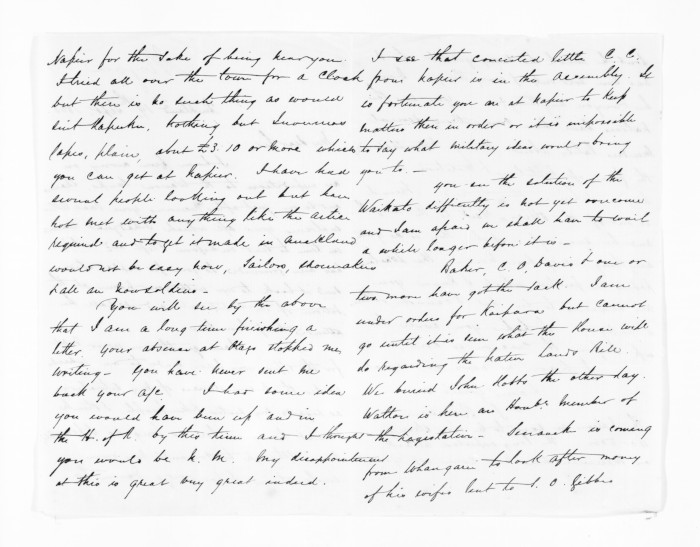 Napier for the sake of being near you.
I tried all over the town for a cloak
but there is no such thing as would
suit Hapuku. Nothing but Inverness
capes, plain, about £3.10 or more which
you can get at Napier. I have had
several people looking out but have
not met with anything like the article
required and to get it made in Auckland
would not be easy now, Tailors, shoemakers
& all are now soldiers -
You will see by the above
that I am a long time finishing a
letter. Your absence at Otago stopped me
writing - You have never sent me
back your a/c. I had some idea
you would have been up and in
the H. of R. by this time and I thought
you would be N. M. My disappointment
at this is great very great indeed.
I see that conceited little C. C.
from Napier is in the Assembly. It
is fortunate you are at Napier to keep
matters there in order or it is impossible
to say what military ideas would bring
you to. -
You see the solution of the
Waikato difficulty is not yet overcome
and I am afraid we shall have to wait
a while longer before it is -
Baker, C. O. Davis & one or
two more have got the sack. I am
under orders for Kaipara but cannot
go until it is seen what the House will
do regarding the Native Lands Bill.
We buried John Hobbs the other day.
Watton is here an Honble. Member of
the Legislative - is coming
from Whangarei to look after money
of his wifes lent to J. O. Gibbes